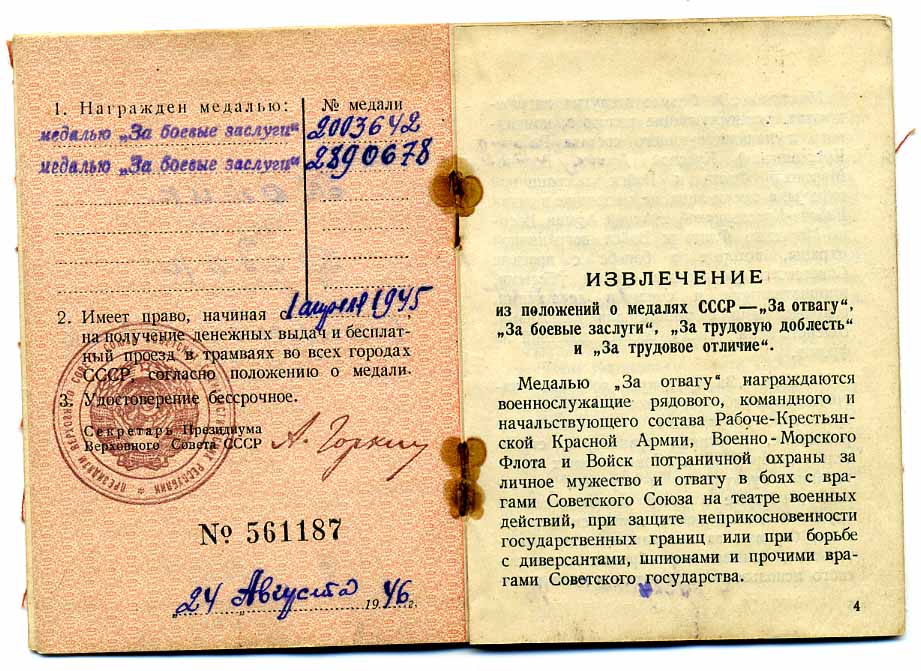 1. Награжден медалью: № медали
медалью „За боевые заслуги“ 2003642
медалью „За боевые заслуги“ 2890678
2. Имеет право, начиная с 1 апреля 1945,
на получение денежных выдач и бесплат-
ный проезд в трамваях во всех городах
СССР согласно положению о медали.
3. Удостоверение бессрочное.
Секретарь Президиума
Верховного Совета СССР А. Горкин
№ 561187
„24“ Августа 1946 г.
ИЗВЛЕЧЕНИЕ
из положений о медалях СССР—„За отвагу“,
„За боевые заслуги“, „За трудовую доблесть“
и „За трудовое отличие“.
Медалью „За отвагу“ награждаются
военнослужащие рядового, командного и
начальствующего состава Рабоче-Крестьян-
ской Красной Армии, Военно-Морского
Флота и Войск пограничной охраны за
личное мужество и отвагу в боях с вра-
гами Советского Союза на театре военных
действий, при защите неприкосновенности
государственных границ или при борьбе
с диверсантами, шпионами и прочими вра-
гами Советского государства.
4